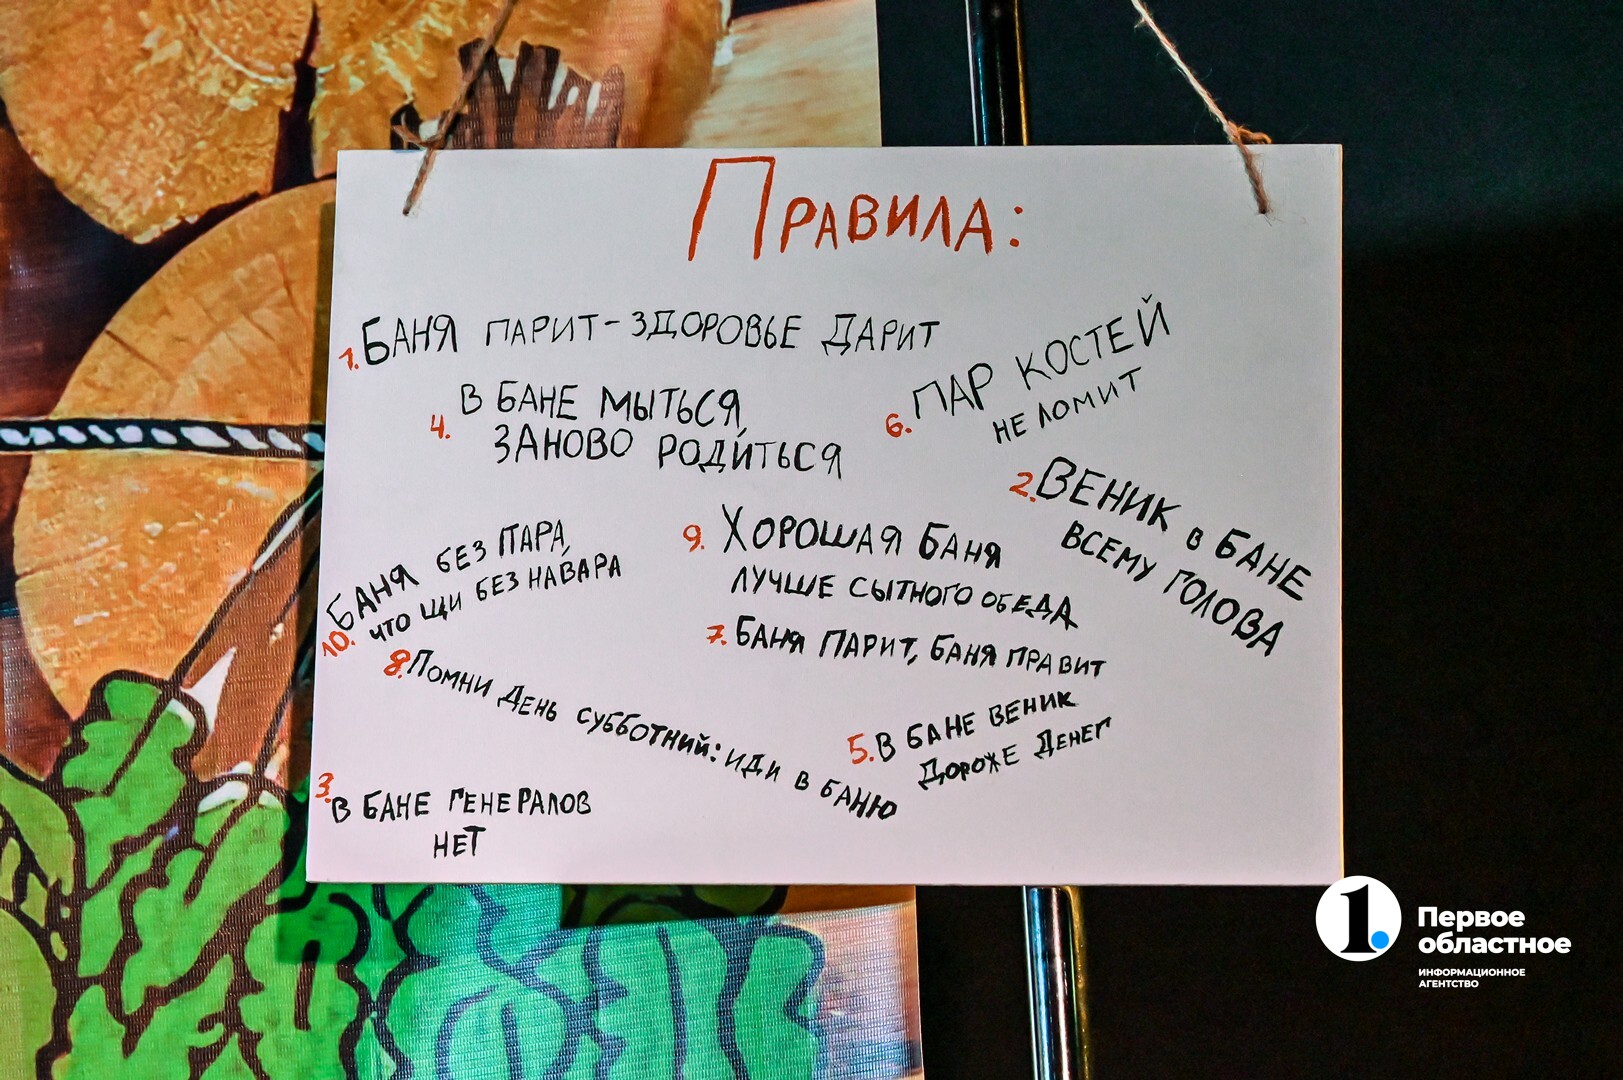 Правила:
1. Баня парит - здоровье дарит
4. В бане мыться,
заново родиться
6. Пар костей
не ломит
2. Веник в бане
всему голова
9. Хорошая баня
лучше сытного обеда
10. Баня без пара,
что щи без навара
7. Баня парит, баня правит
8. Помни день субботний: иди в баню
5. В бане веник
дороже денег
3. В бане генералов
нет
1.
Первое
областное
ИНФОРМАЦИОННОЕ
АГЕНТСТВО